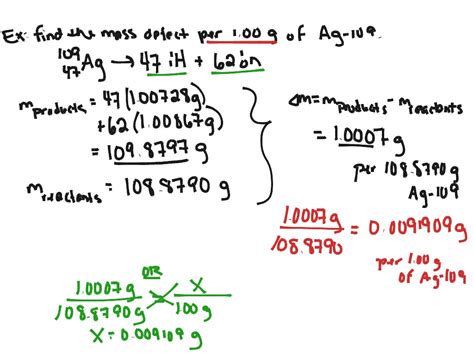 Ex: find the mass defect per 1.00 g of Ag-109.
¹⁰⁹₄₇Ag → 47 ¹₁H + 62 ¹₀n
m products = 47(1.00728g)
+62(1.00867g)
= 109.8797 g
m reactants = 108.8790 g
Δm = m products - m reactants
= 1.0007g
per 108.8790 g
Ag-109
1.0007g / 108.8790 = 0.0091909g
per 1.00 g
of Ag-109
OR
1.0007 g / 108.8790 g = X / 1.00 g
X = 0.009109 g